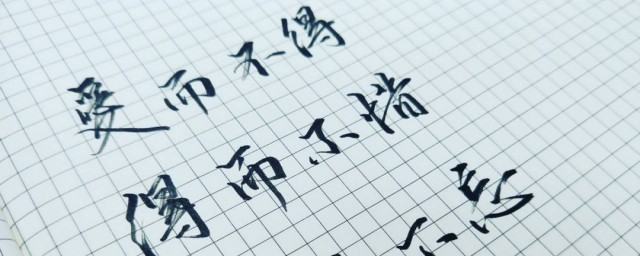 爱而不得
得而不惜
不